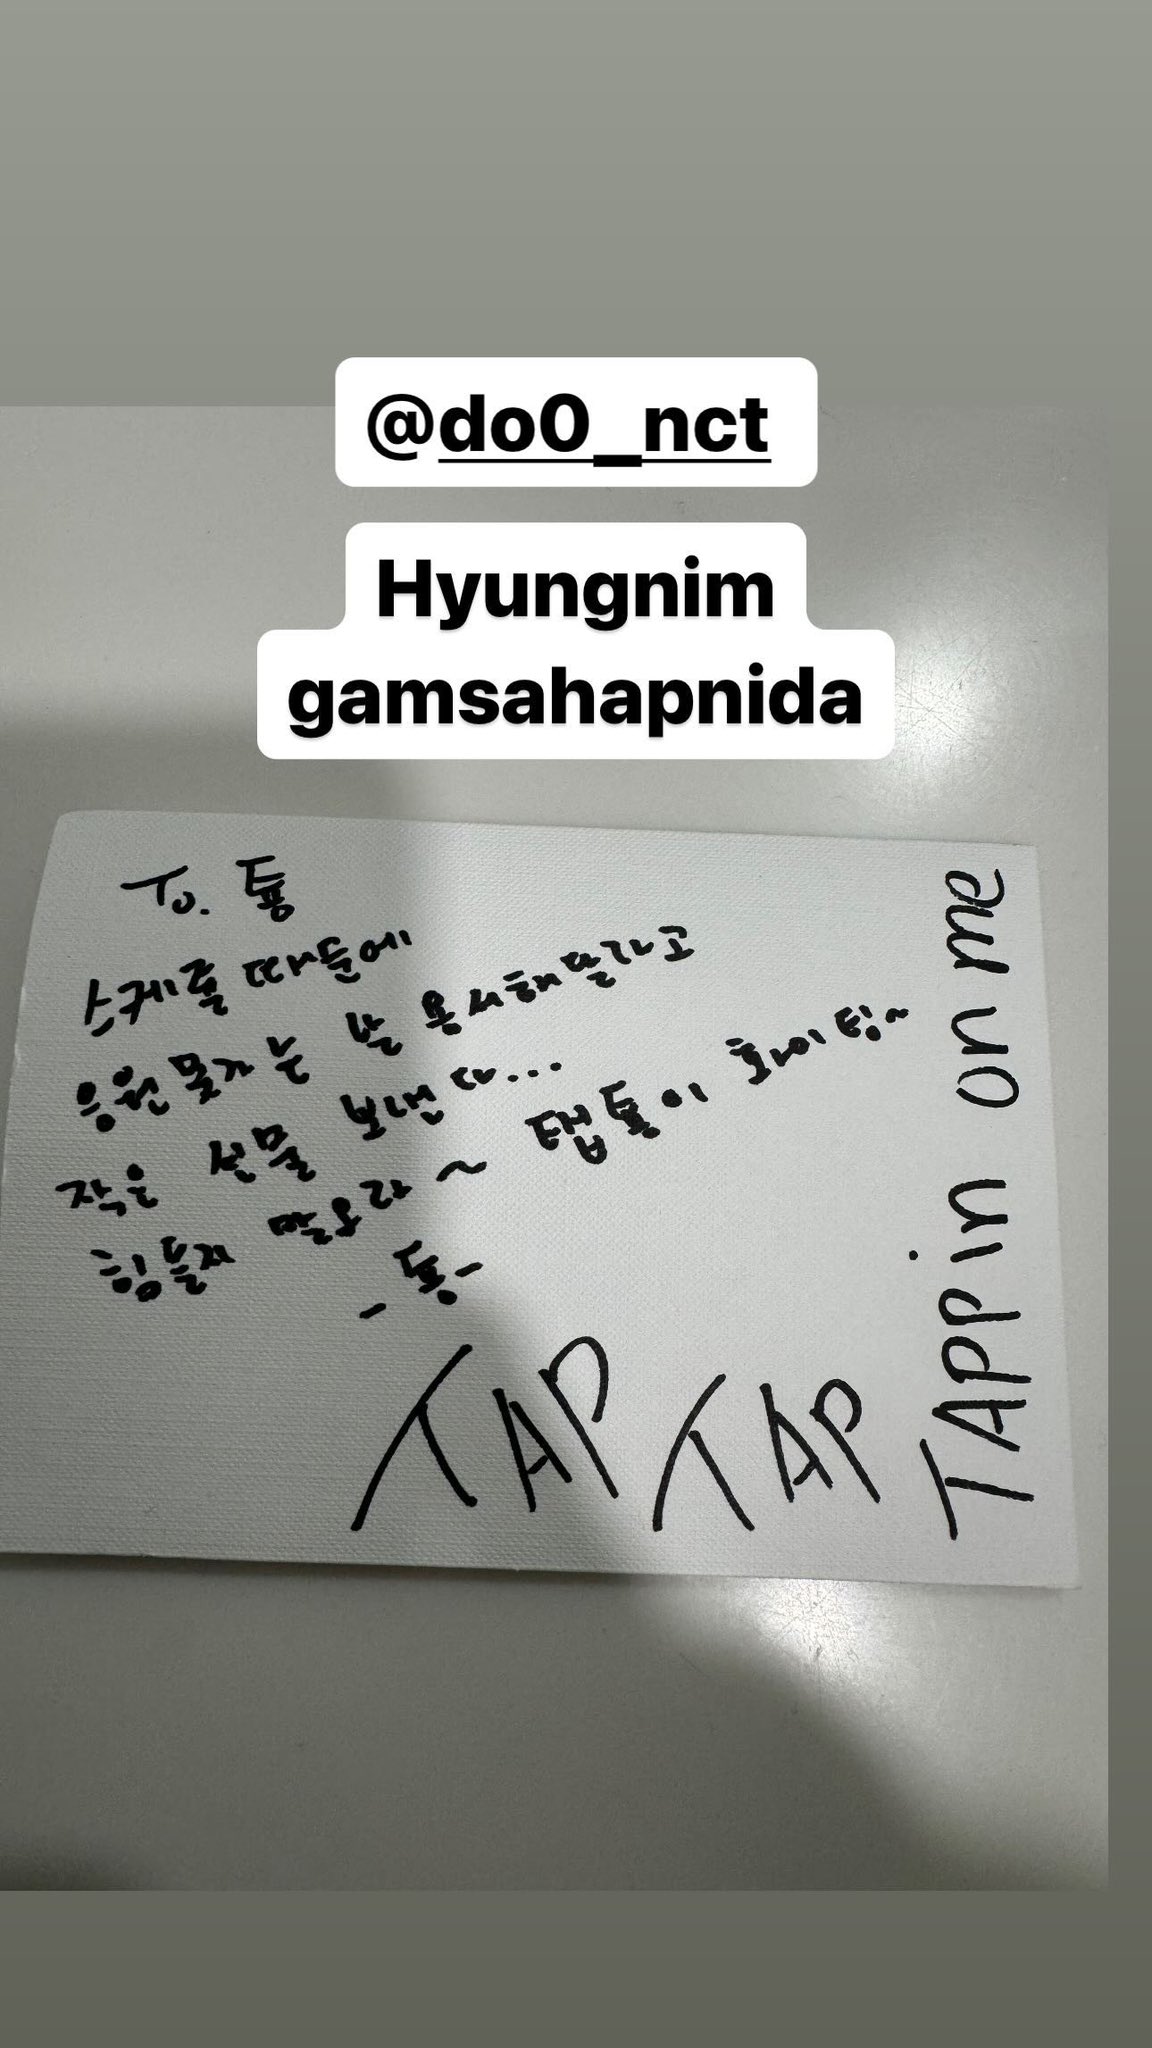 @do0_nct
Hyungnim
gamsahapnida
To. 툥
스케줄 때문에
응원 못가는 날 용서해달라고
작은 선물 보낸다...
힘들지 말오라~ 탭툥이 화이팅~
- 툥-
TAP TAP
TAPPin on me